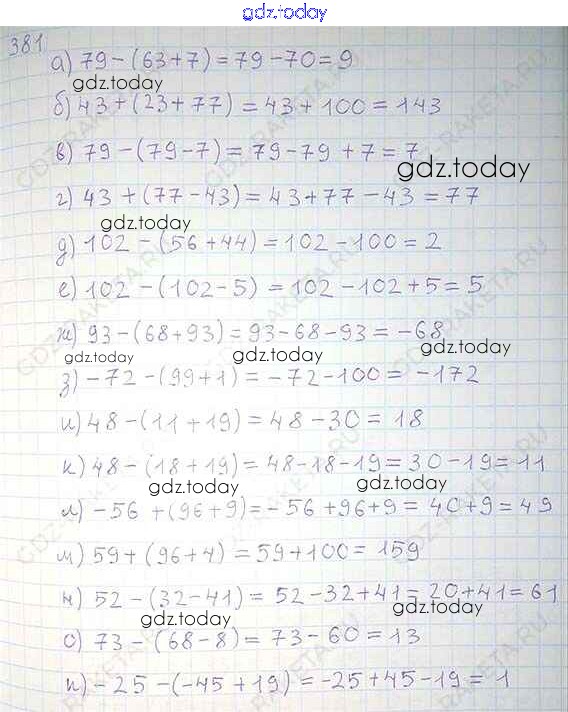 gdz.today
381
а) 79-(63+7)=79-70=9
gdz.today
б) 43+(23+77)=43+100=143
в) 79-(79-7)=79-79+7=7
gdz.today
г) 43+(77-43)=43+77-43=77
gdz.today
д) 102-(56+44)=102-100=2
е) 102-(102-5)=102-102+5=5
ж) 93-(68+93)=93-68-93=-68
gdz.today gdz.today gdz.today
з) -72-(99+1)=-72-100=-172
и) 48-(11+19)=48-30=18
к) 48-(18+19)=48-18-19=30-19=11
gdz.today gdz.today
л) -56+(96+9)=-56+96+9=40+9=49
м) 59+(96+4)=59+100=159
н) 52-(32-41)=52-32+41=20+41=61
gdz.today gdz.today
о) 73-(68-8)=73-60=13
п) -25-(-45+19)=-25+45-19=1